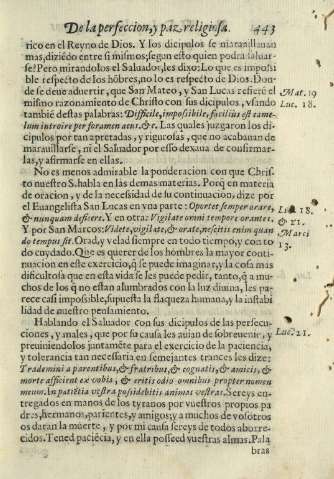 De la perfeccion, y paz religiosa. 443
rico en el Reyno de Dios. Y los dicipulos se marauillauan
mas, diziēdo entre si mismos; segun esto quien podra saluar-
se? Pero mirandolos el Saluador, les dixo: Lo que es imposi
ble respecto de los hōbres, no lo es respecto de Dios. Don-
de se deue aduertir, que San Mateo, y San Lucas refierē el
mismo razonamiento de Christo con sus dicipulos, vsando
tambiē destas palabras: Difficile, impossibile, facilius est came-
lum introire per foramen acus, &c. Las quales juzgaron los di-
cipulos por tan apretadas, y rigurosas, que no acabauan de
marauillarse, ni el Saluador por esso dexaua de confirmar-
las, y afirmarse en ellas.
Mat. 19
Luc. 18.
No es menos admirable la ponderacion con que Chris-
to nuestro S. habla en las demas materias. Porq̄ en materia
de oracion, y de la necessidad de su continuacion, dize por
el Euangelista San Lucas en vna parte: Oportet semper orare,
& nunquam deficere. Y en otra: Vigilate omni tempore orantes.
Y por San Marcos: Videte, vigilate, & orate, nescitis enim quan
do tempus sit. Orad, y velad siempre en todo tiempo, y con to
do cuydado. Que es querer de los hombres la mayor conti-
nuacion en este exercicio, q̄ se puede imaginar, y la cosa mas
dificultosa que en esta vida se les puede pedir, tanto, q̄ a mu-
chos de los q̄ no estan alumbrados con la luz diuina, les pa-
rece casi imposible, supuesta la flaqueza humana, y la instabi
lidad de nuestro pensamiento.
Luc. 18.
& 21.
Marci
13.
Hablando el Saluador con sus dicipulos de las persecu-
ciones, y males, que por su causa les auian de sobreuenir, y
preuiniendolos juntamēte para el exercicio de la paciencia,
y tolerancia tan necessaria en semejantes trances les dize:
Trademini a parentibus, & fratribus, & cognatis, & amicis, &
morte afficient ex vobis, & eritis odio omnibus propter nomen
meum. In patiētia vestra possidebitis animas vestras. Sereys en-
tregados en manos de los tyranos por vuestros propios pa
dres, hermanos, parientes, y amigos; y a muchos de vosotros
os daran la muerte, y por mi causa sereys de todos aborre-
cidos. Tened paciēcia, y en ella posseed vuestras almas. Pala
bras
Luc. 21.